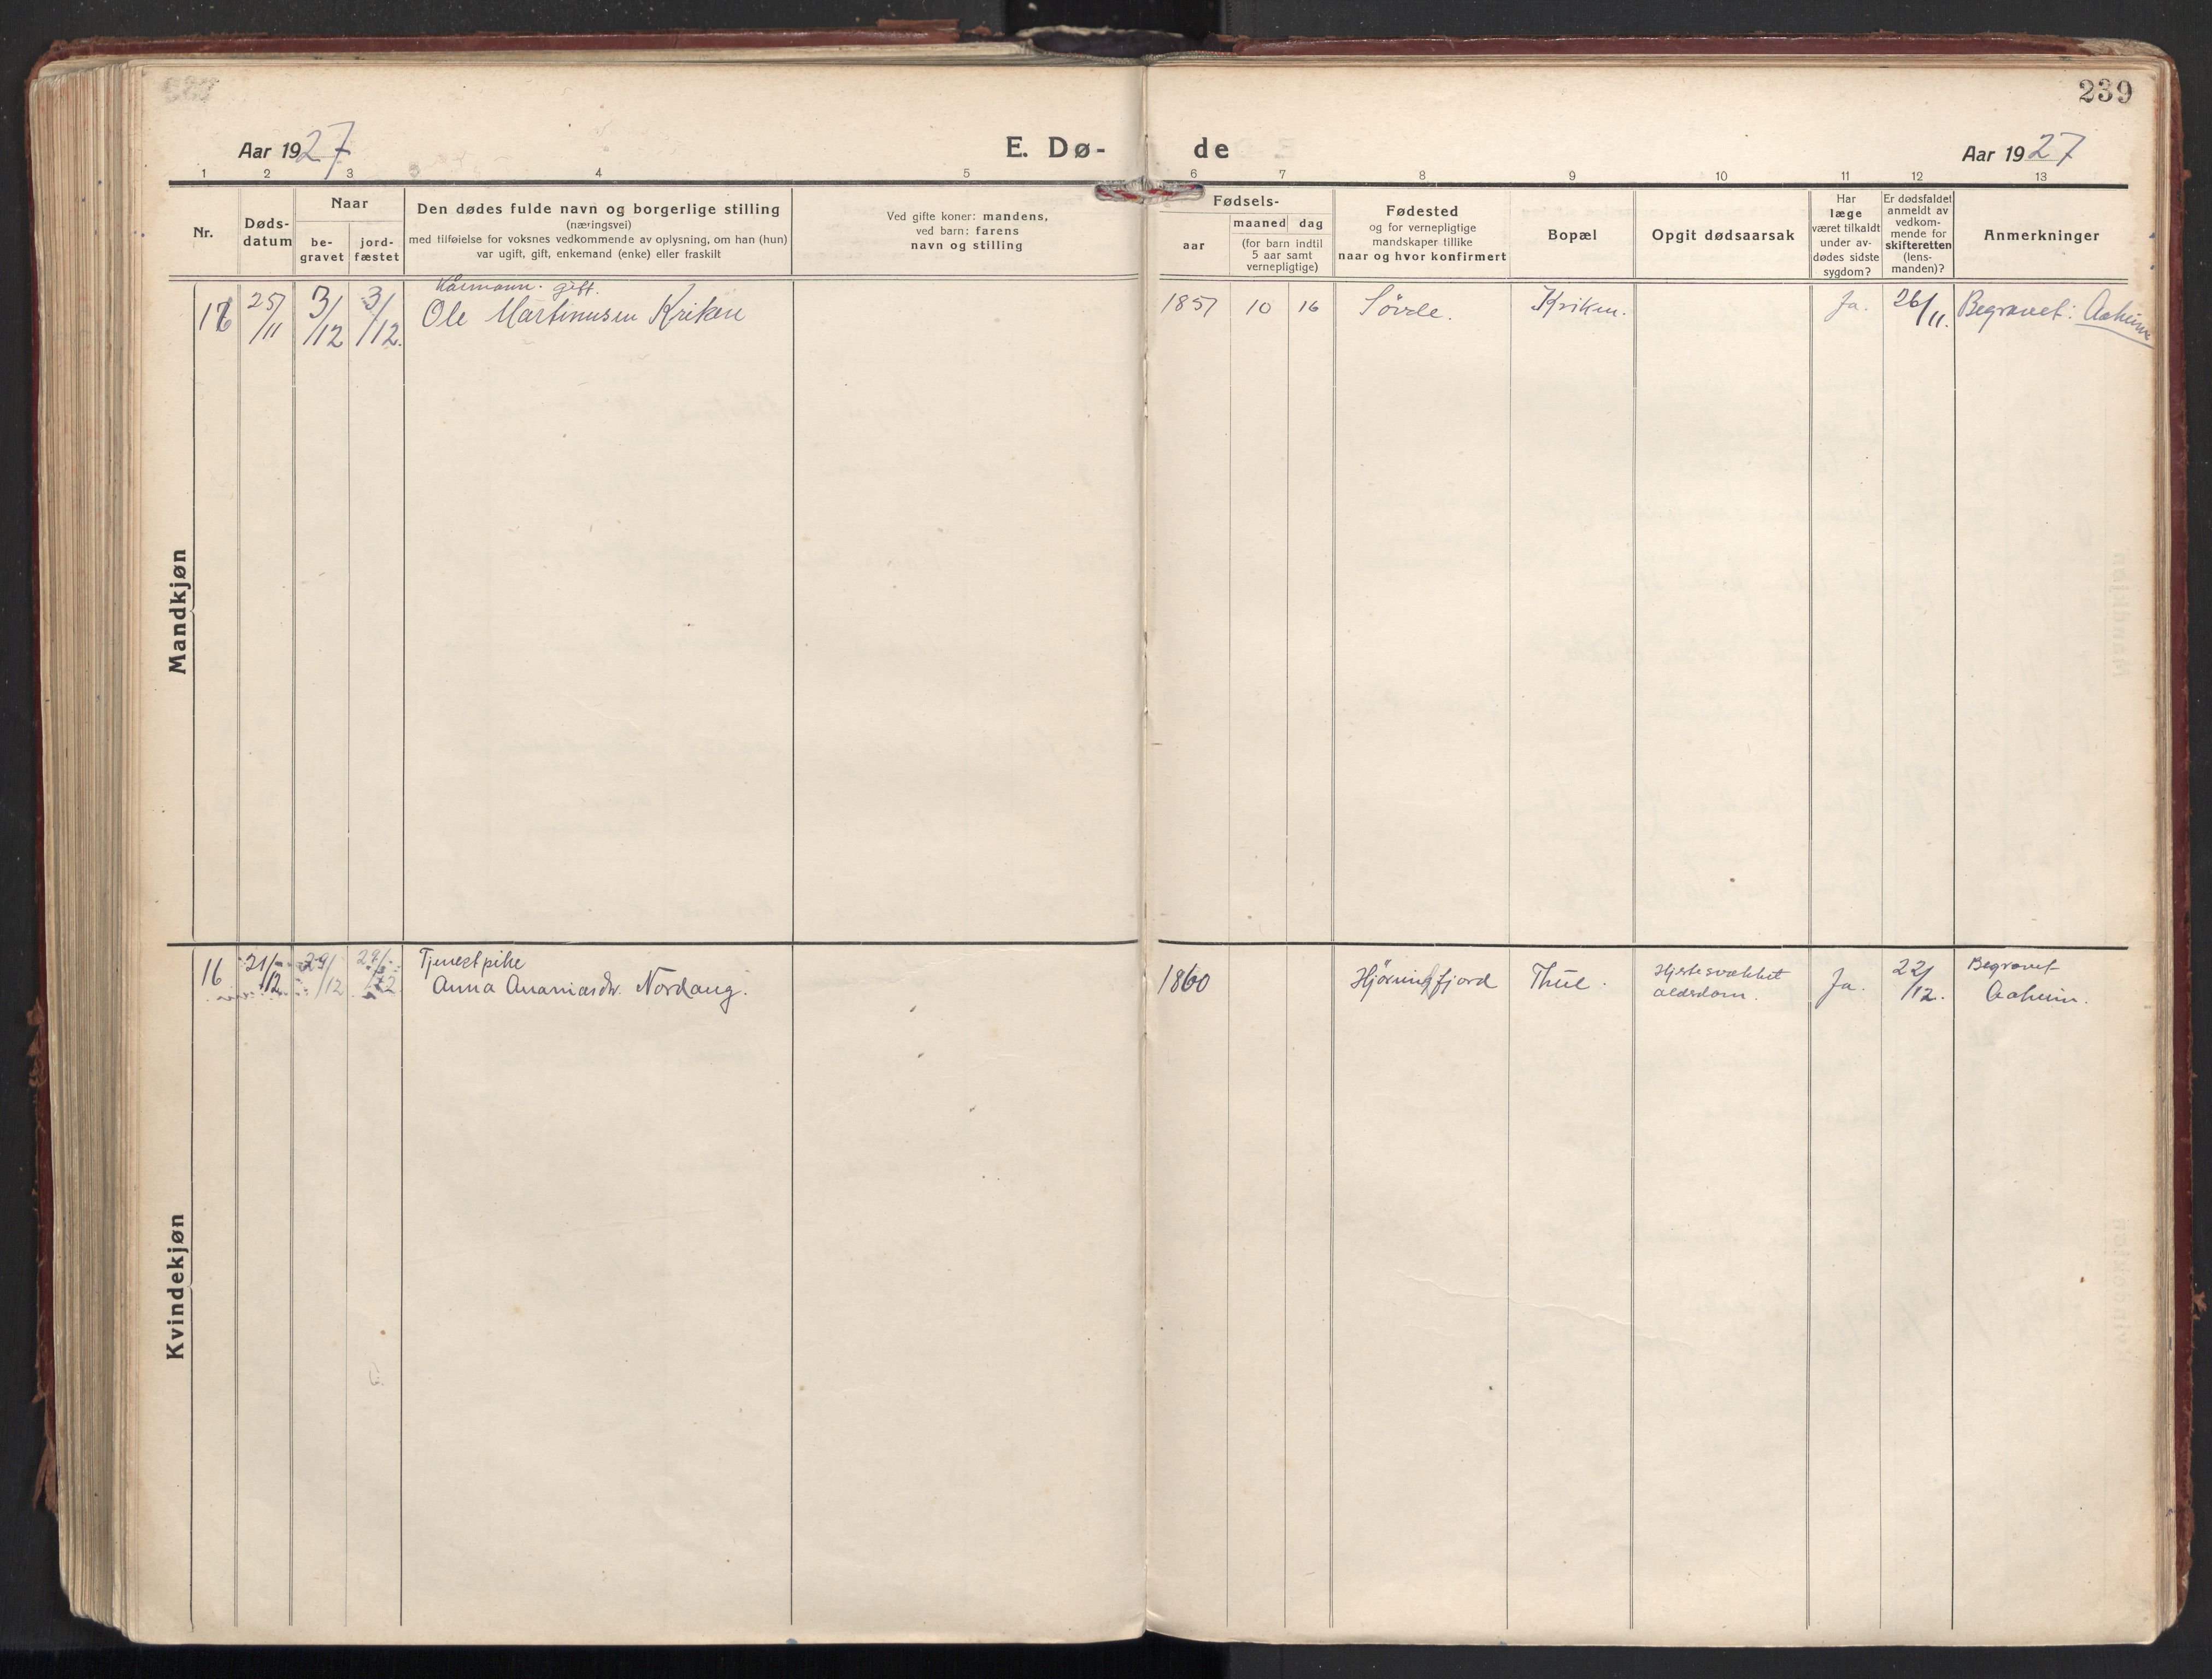 239
Aar 1927
E. Dø-
de
Aar 1927
1 2 3 4 5 6 7 8 9 10 11 12 13
Nr.
Døds-
datum
Naar
be-
gravet
jord-
fæstet
Den dødes fulde navn og borgerlige stilling
(næringsvei)
med tilføielse for voksnes vedkommende av oplysning, om han (hun)
var ugift, gift, enkemand (enke) eller fraskilt
Ved gifte koner: mandens,
ved barn: farens
navn og stilling
Fødsels-
aar
maaned dag
(for barn indtil
5 aar samt
vernepligtige)
Fødested
og for vernepligtige
mandskaper tillike
naar og hvor konfirmert
Bopæl
Opgit dødsaarsak
Har
læge
været tilkaldt
under av-
dødes sidste
sygdom?
Er dødsfaldet
anmeldt av
vedkom-
mende for
skifteretten
(lens-
manden)?
Anmerkninger
Mandkjøn
Kårmann. gift.
25/11 3/12 3/12. Ole Martinusen Kriken 1857 10 16 Søvde. Kriken. Ja. 26/11. Begravet: Aaheim
Kvindekjøn
Tjenestpike
16 21/12 29/12 29/12 Anna Ananiasdtr. Nordang. 1860 Thue. Ja. 22/12.
Hjertesvækket
alderdom.
Begravet
Aaheim.